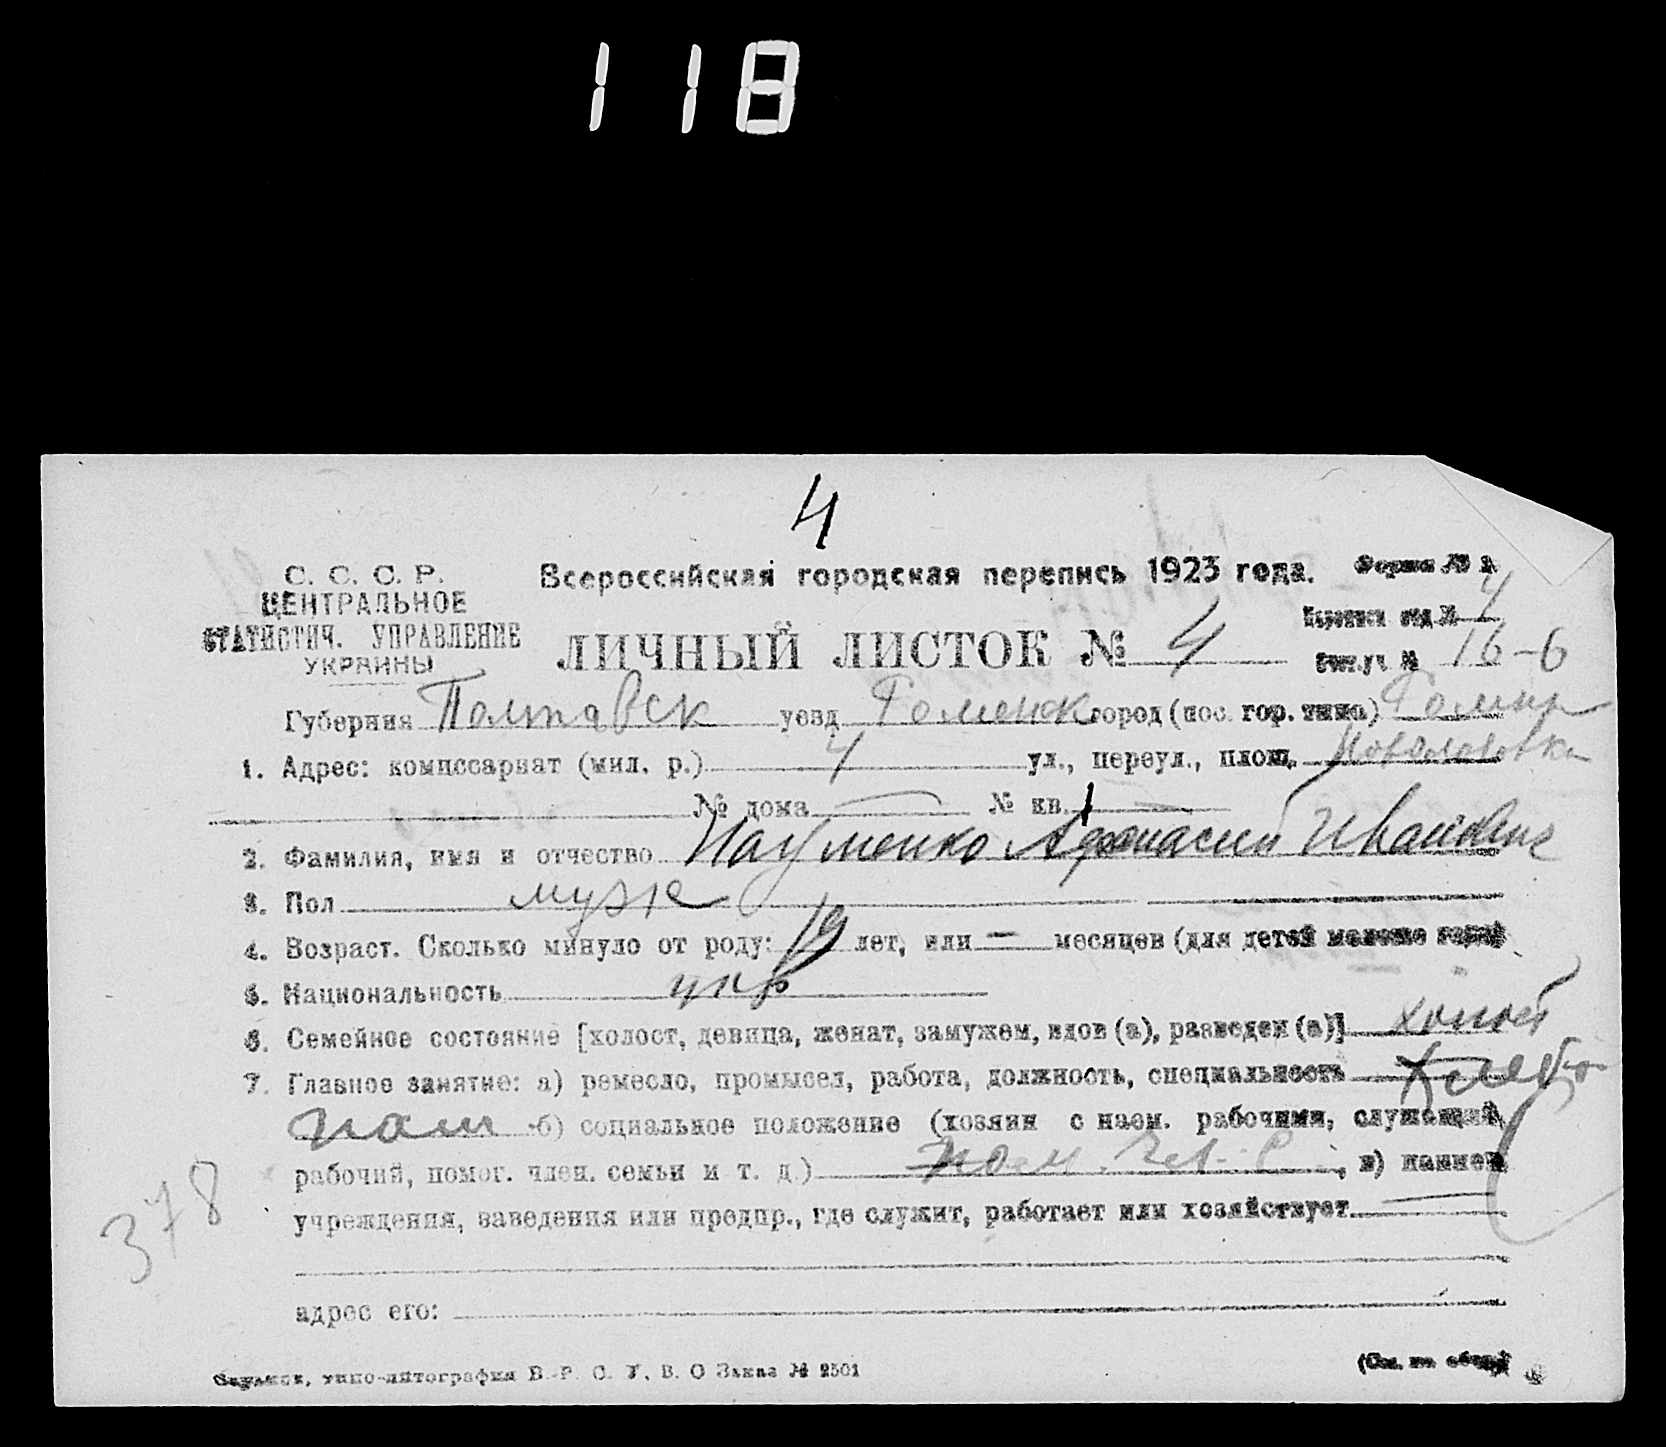 118
4
С. С. С. Р.
ЦЕНТРАЛЬНОЕ
СТАТИСТИЧ. УПРАВЛЕНИЕ
УКРАИНЫ
Всероссийская городская перепись 1923 года.
Форма № 2.
ЛИЧНЫЙ ЛИСТОК № 4
отд. № 4
Счет. уч. № 16-6
Губерния Полтавск уезд Роменск город (пос. гор. типа) Ромны
1. Адрес: комиссариат (мил. р.) 4 ул., переул., площ.
№ дома — № кв. 1 —
2. Фамилия, имя и отчество Науменко Афанасий Иванович
3. Пол муж
4. Возраст. Сколько минуло от роду: 19 лет, или — месяцев (для детей моложе года)
5. Национальность укр
6. Семейное состояние [холост, девица, женат, замужем, вдов (а), разведен (а)] холост
7. Главное занятие: а) ремесло, промысел, работа, должность, специальность хлебо
паш б) социальное положение (хозяин с наем. рабочими, служащий,
рабочий, помог. член. семьи и т. д.) пом. чл. с, в) наимен.
учреждения, заведения или предпр., где служит, работает или хозяйствует —
адрес его:
378
типо-литография В. Р. С. У. В. О Заказ № 2501
(См. на обор.)